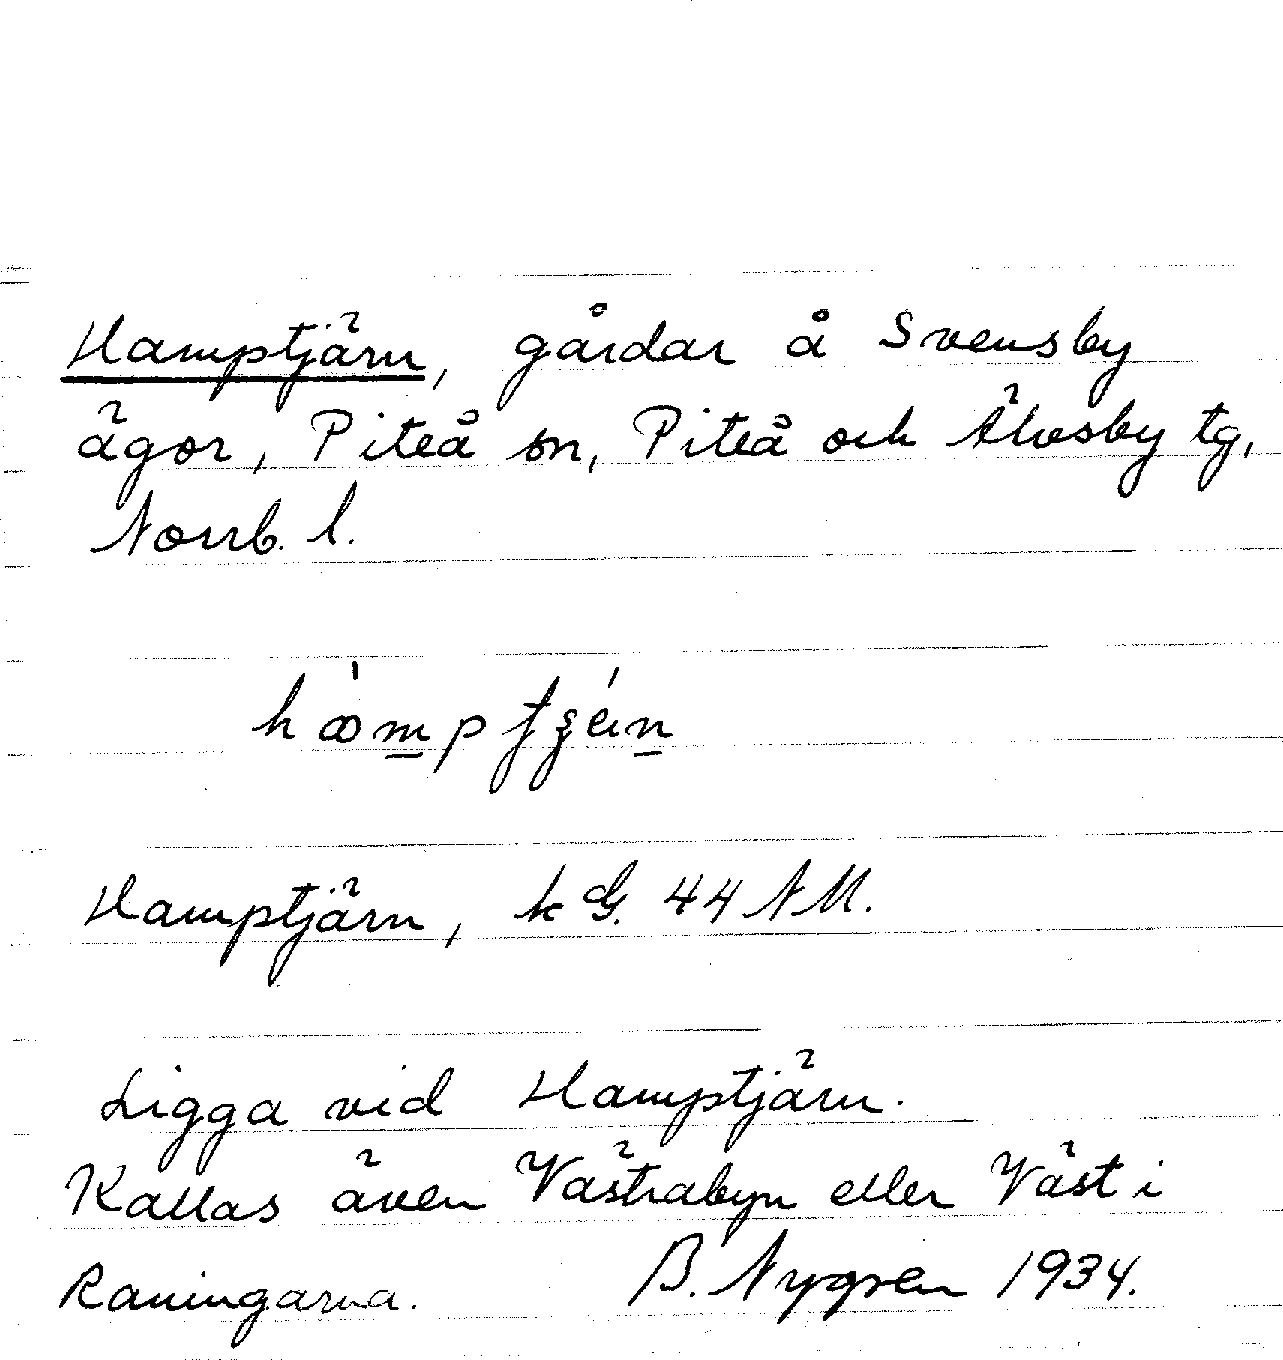 Hamptjärn, gårdar å Svensby
ägor, Piteå sn, Piteå och Älvsby tg,
Norrb. l.
Hamptjärn, k G. 44 NM.
Ligga vid Hamptjärn.
Kallas även Västrabyn eller Väst i
Raningarna. B. Nygren 1934.